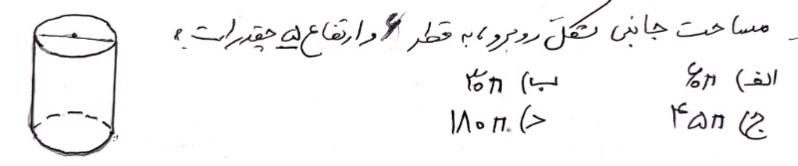 مساحت جانبی شکل روبرو، به قطر ۶ و ارتفاع ۵ چقدر است؟
الف) ۶۰π ب) ۳۰π
ج) ۴۵π د) ۱۸۰π